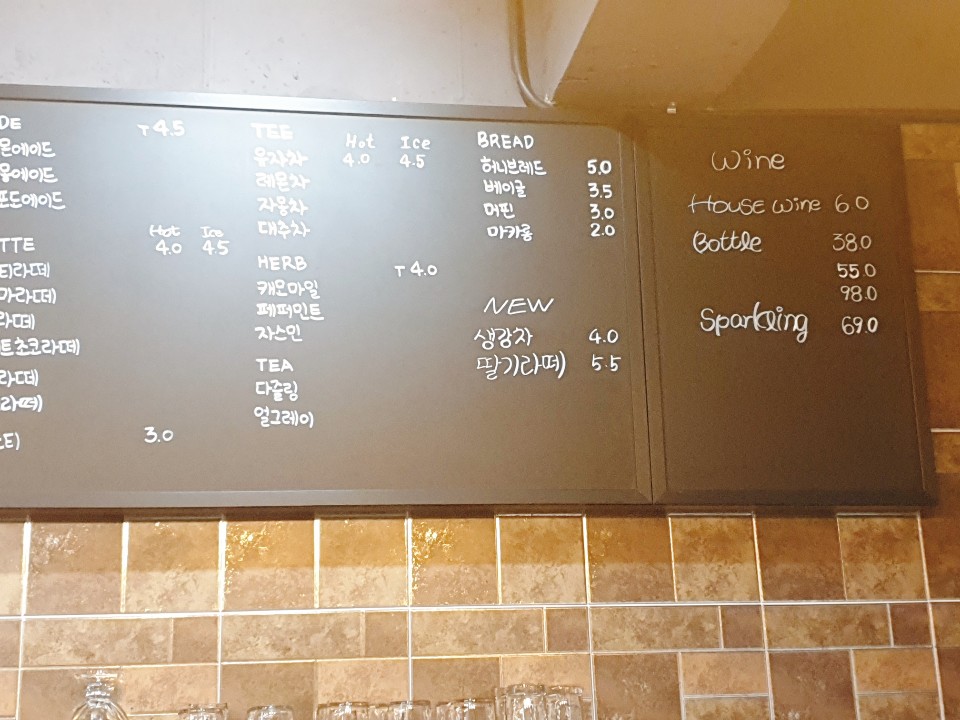 DE T4.5
몬에이드
몽에이드
포도에이드
TTE Hot Ice
4.0 4.5
티라떼
마라떼)
라떼)
트초코라떼)
라떼)
라떼)
3.0
TEE Hot Ice
유자차 4.0 4.5
레몬차
자몽차
대추차
HERB T4.0
캐모마일
페퍼민트
자스민
TEA
다즐링
얼그레이
BREAD
허니브레드 5.0
베이글 3.5
머핀 3.0
마카롱 2.0
NEW
생강차 4.0
딸기라떼) 5.5
Wine
House wine 6.0
Bottle 38.0
55.0
98.0
Sparkling 69.0